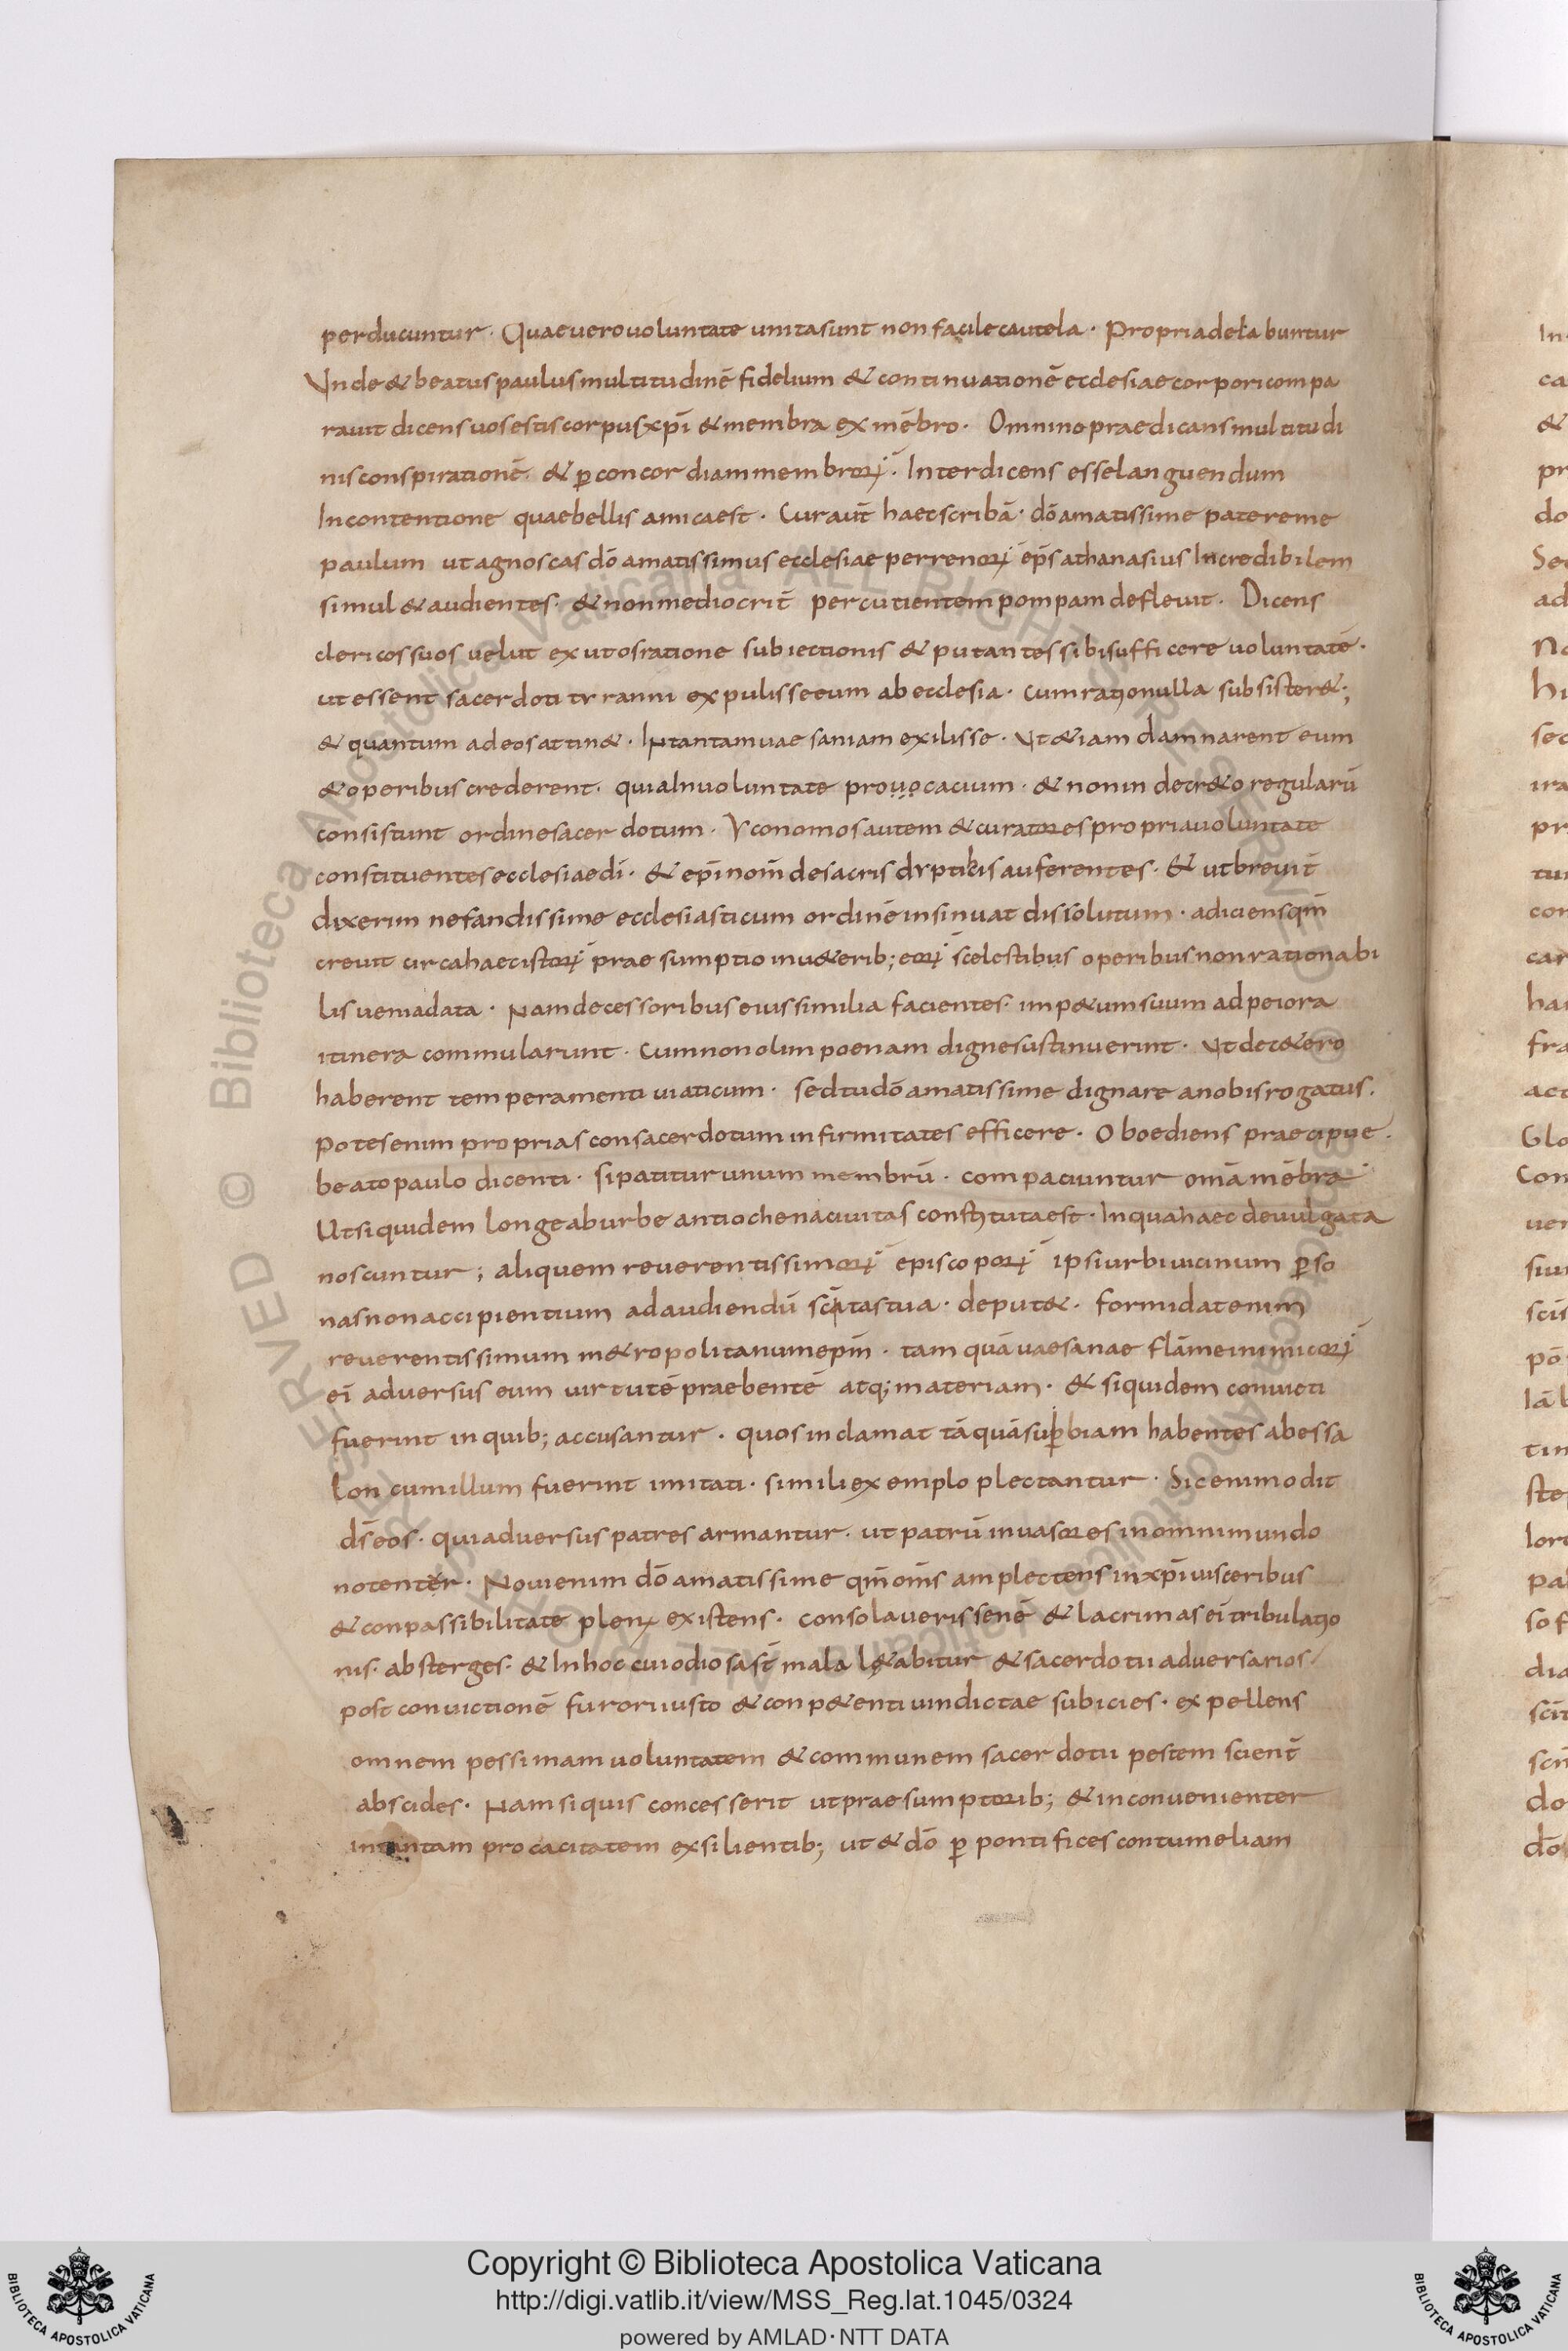 perducuntur · Quaeuerouoluntate unitasunt non facile cautela · Propriadelabuntur
Vnde & beatuspaulusmultitudinē fidelium & continuationē ecclesiaecorporicompa
rauit dicensuosestiscorpusxp̄i & membra ex mēbro · Omninopraedicansmultitudi
nisconspirationē · & p̱concordiammembroꝝ · Interdicens esselanguendum
Incontentione quaebellis amicaest · Curauit̄ haecscribā · dōamatissime patereme
paulum utagnoscas dōamatissimus ecclesiae perrenoꝝ ep̄s athanasius Incredibilem
simul & audientes · & nonmediocrit̄ percutientem pompam defleuit · Dicens
clericos suos uelut exutosratione subiectionis & putantes sibisufficere uoluntatē ·
ut essent sacerdoti tyranni expulisseeum abecclesia · cumrationulla subsister& ;
& quantum adeosattin& · Intantamuaesaniamexilisse · Vt&iam damnarent eum
& operibus crederent · quiaInuoluntate prouocacium · & nonin decr&o regularū
consistunt ordinesacerdotum · Yconomosautem & curatorespropriauoluntate
constituentesecclesiaedī · & ep̄inom̄ desacris dyptikis auferentes · & utbreuit̄
dixerim nefandissime ecclesiasticum ordinēinsinuat dissolutum · adiciensqm̄
creuit circahaecistoꝝ praesumptio inu&erib; eoꝝ scelestibus operibusnonrationabi
lisueniadata · Namdecessoribuseiussimilia facientes · imp&umsuum adpeiora
itinera commularunt · Cumnonolimpoenam dignesustinuerint · Vtdec&ero
haberent temperamenti uiaticum · sedtudōamatissime dignare anobisrogatus ·
Potesenim propriasconsacerdotuminfirmitates efficere · Oboediens praecipue ·
beatopaulo dicenti · sipatiturunum membrū · compaciuntur om̄amēbra
Utsiquidem longeaburbeantiochenaciuitas constitutaest · Inquahaec deuulgata
noscuntur ; aliquem reuerentissimoꝝ episcopoꝝ ipsiurbiuicinum p̱so
nasnonaccipientium adaudiendū sc̄itastua · deput& · formidatenim
reuerentissimum m&ropolitanumep̄m · tamquāuaesanae flāmeinimicoꝝ
eī aduersus eum uirtutēpraebentē atq; materiam · & siquidem conuicti
fuerint inquib; accusantur · quosinclamat tāquāsup̱biam habentes abessa
lon cumillum fuerint imitati · similiexemplo plectantur · Sicenimodit
ds̄eos · quiaduersus patres armantur · ut patrū inuasores inomnimundo
notentēr · Nouienim dōamatissime qm̄om̄s amplectens inxp̄iuisceribus
& conpassibilitate plen; existens · consolauerissenē & lacrimaseitribulatio
nis · absterges · & Inhoc cuiodiosast̄ mala l&abitur & sacerdotiiaduersarios
post conuictionē furoriiusto & conp&entiuindictae subicies · expellens
omnem pessimamuoluntatem & communem sacerdotii pestem scient̄
abscides · Namsiquis concesserit utpraesumptorib; & inconuenienter
intantam procacitatem exsilientib; ut & dō p̱ pontificescontumeliam
Copyright © Biblioteca Apostolica Vaticana
http://digi.vatlib.it/view/MSS_Reg.lat.1045/0324
powered by AMLAD·NTT DATA